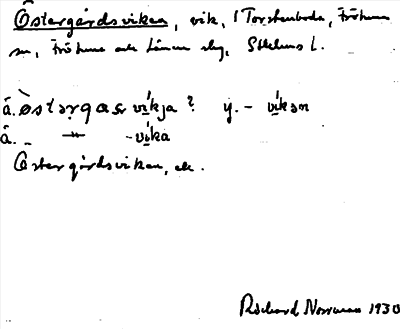 Östergårdsviken, vik, i Torstenboda, Frötuna
sn, Frötuna och Länna skg, Sthlms l.
ä. östərgaṣ víkja? y. - víkən
ä. - " - víka
Östergårdsviken, ek.
Richard Norrman 1930